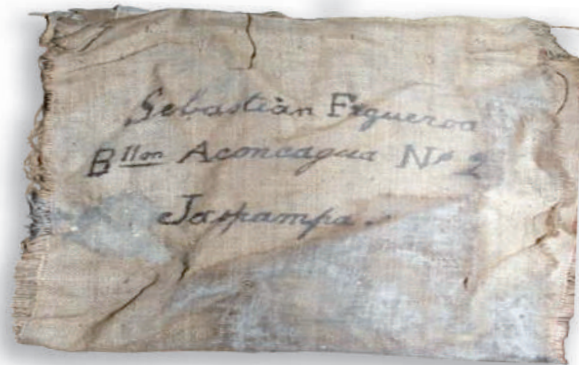 Sebastián Figueroa
Bllon Aconcagua Nº 2
Jaspampa